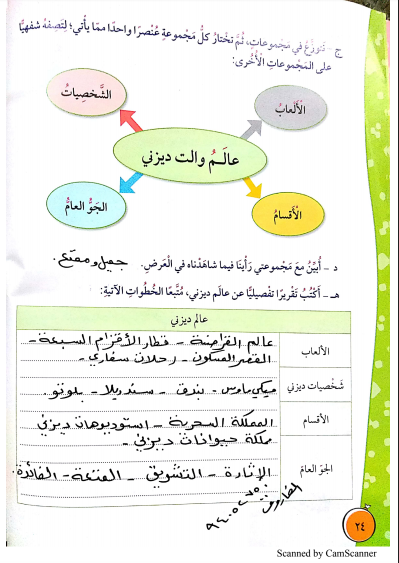 ج - نَتوزَّعُ في مَجْموعاتٍ، ثُمَّ نَختارُ كلُّ مَجْموعةٍ عُنْصرًا واحدًا ممّا يأتي؛ لِتَصِفهُ شفهيًّا
على المَجْموعاتِ الأُخْرى:
الشَّخصِيّاتُ
الأَلْعابُ
عالَمُ والت ديزني
الجَوُّ العامُّ
الأَقسامُ
د - أُبيِّنُ مَعَ مَجْموعتي رَأيَنا فيما شاهَدْناه في العَرضِ. جميل وممتع.
هـ - أَكتُبُ تَقريرًا تَفْصيليًّا عن عالَمِ ديزني، مُتَّبعًا الخُطُواتِ الآتيةَ:
عالم ديزني
الألعاب
عالم القراصنة - قطار الأقزام السبعة -
القصر المسكون - رحلات سفاري -
شَخْصيات ديزني
ميكي ماوس - بندق - سندريلا - بلوتو.
الأقسام
المملكة السحرية - استوديوهات ديزني
مملكة حيوانات ديزني -
الجوّ العامّ
الإثارة - التشويق - المتعة - الفائدة.
٢٤
Scanned by CamScanner